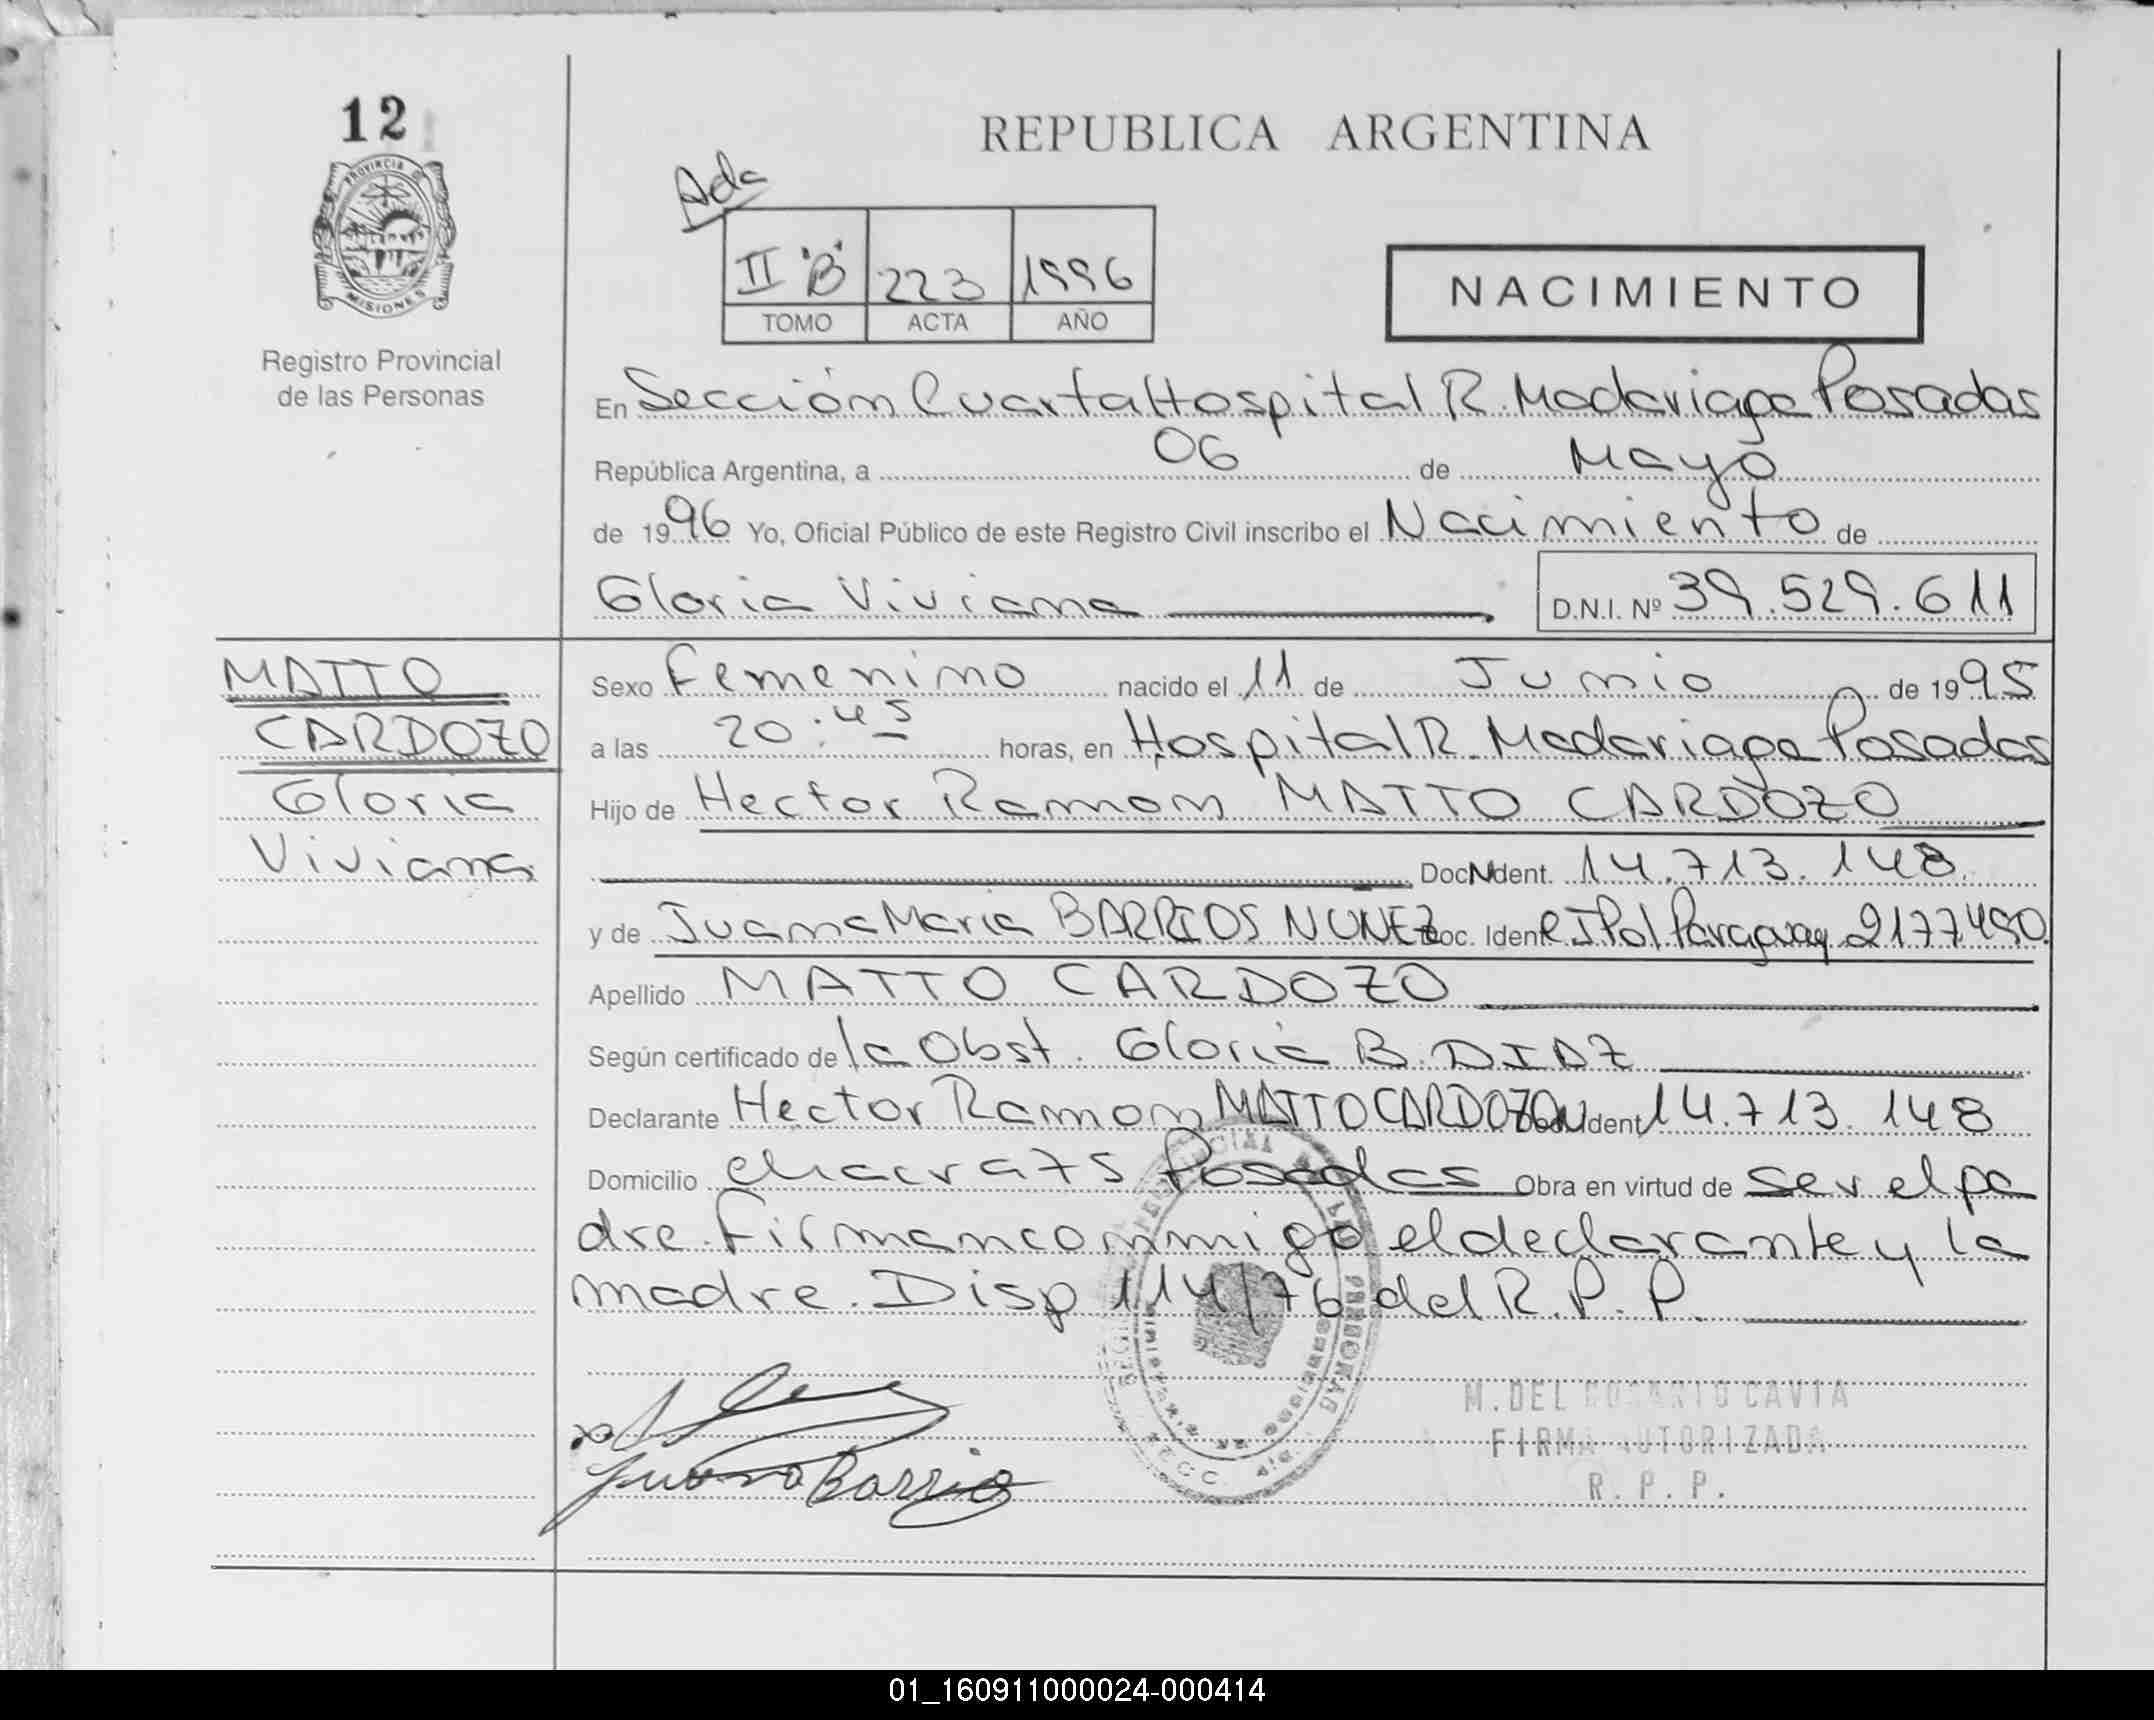 12
PROVINCIA DE
MISIONES
Registro Provincial
de las Personas
REPUBLICA ARGENTINA
II "B" 223 1996
TOMO ACTA AÑO
NACIMIENTO
En Sección Cuarta Hospital R. Madariaga Posadas
República Argentina, a 06 de Mayo
de 1996 Yo, Oficial Público de este Registro Civil inscribo el Nacimiento de
Gloria Viviana D.N.I. Nº 39.529.611
MATTO
CARDOZO
Gloria
Viviana
Sexo Femenino nacido el 11 de Junio de 1995
a las 20:45 horas, en Hospital R. Madariaga Posadas
Hijo de Hector Ramon MATTO CARDOZO
Doc. Ident. 14.713.148
y de Juana Maria BARRIOS NUNEZ Doc. Ident. C I Pol Paraguay 2177490
Apellido MATTO CARDOZO
Según certificado de la Obst. Gloria B. DIAZ
Declarante Hector Ramon MATTO CARDOZO Doc. Ident 14.713.148
Domicilio chacra 75 Posadas Obra en virtud de ser el pa
dre. Firman conmigo el declarante y la
madre. Disp 114/76 del R.P.P.
Juana Barrios
M. DEL ROSARIO CAVIA
FIRMA AUTORIZADA
R.P.P.
01_160911000024-000414